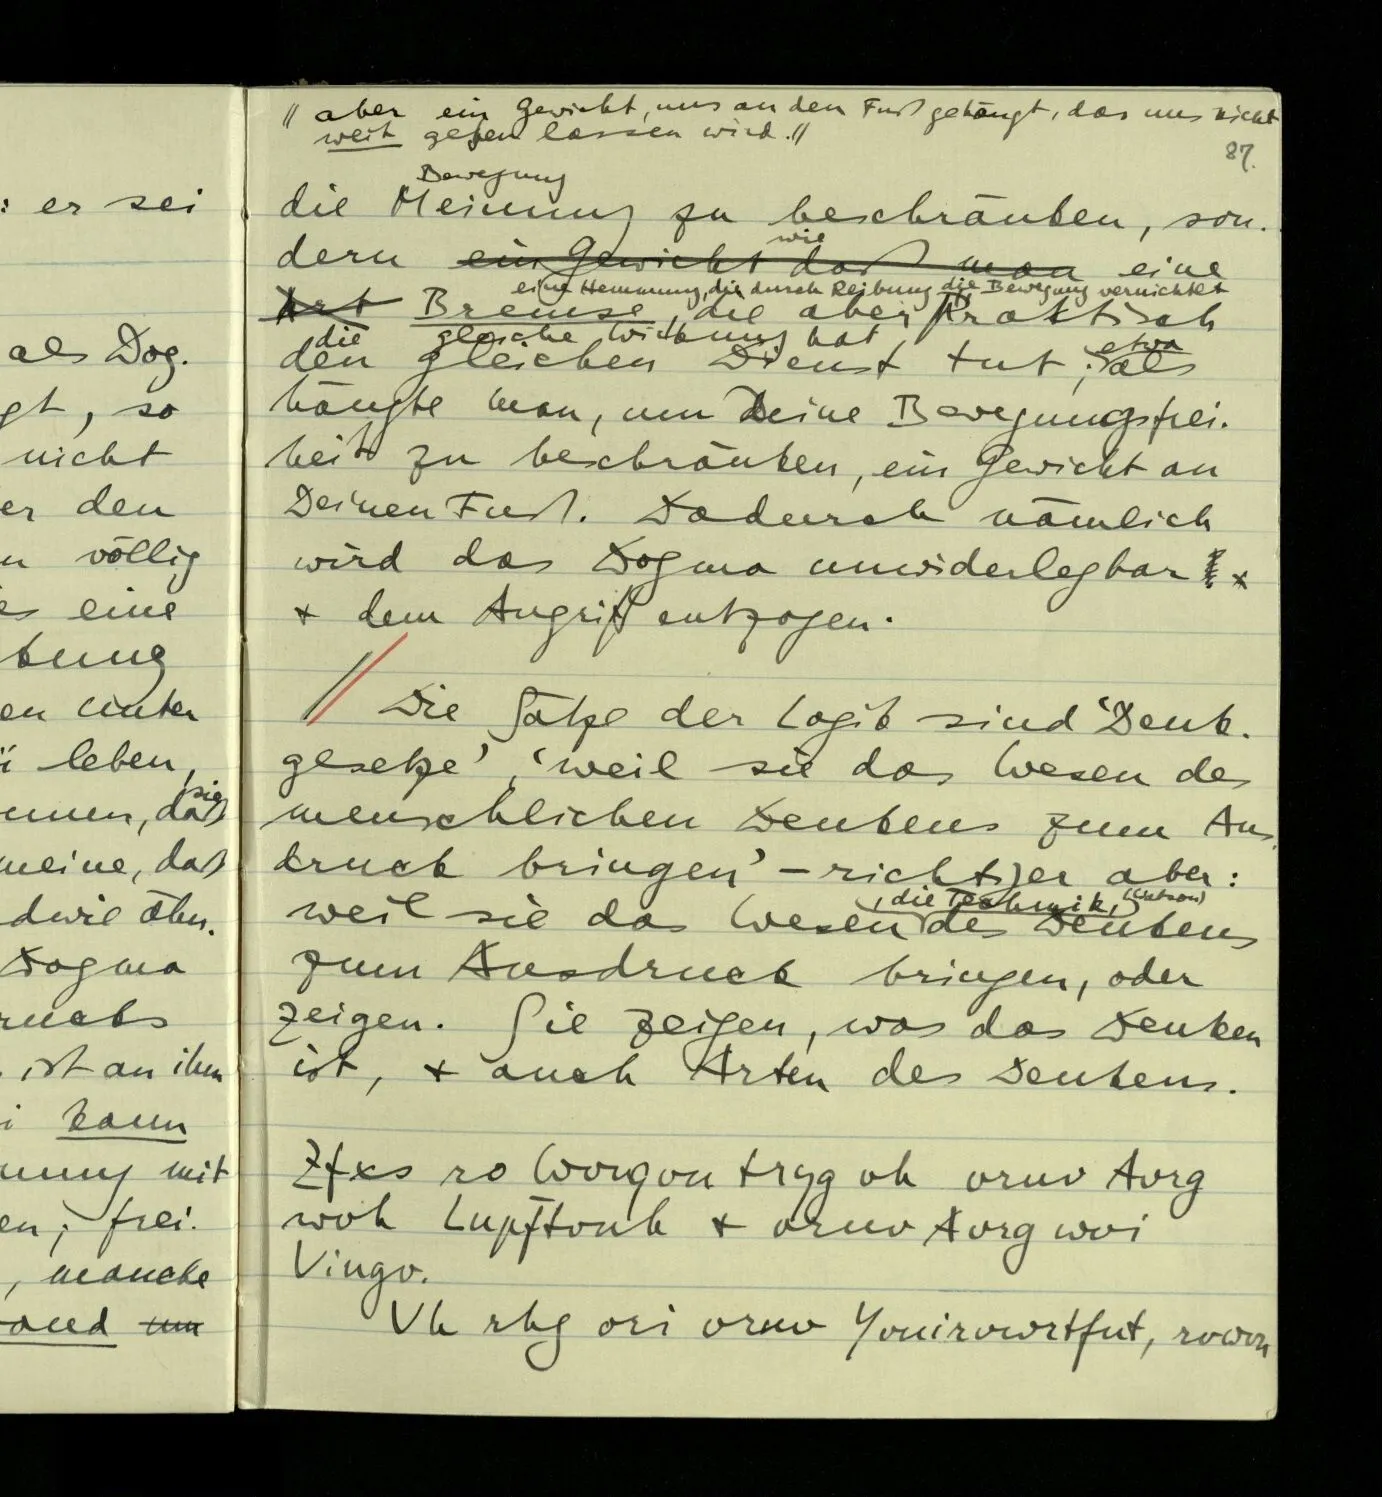 : er sei
als Dog.
gt, so
nicht
er den
n völlig
es eine
bung
en unter
leben,
sie
men, daß
meine, daß
dwie ähn.
Dogma
rucks
ist an ihm
i kann
nung mit
en; frei.
, manche
um
// aber ein Gewicht, uns an den Fuß gehängt, das uns nicht
weit gehen lassen wird.//
87.
Bewegung
die Meinung zu beschränken, son-
wie
dern ein Gewicht daß man eine
eine Hemmung, die durch Reibung die Bewegung vernichtet
Art Bremse, die aber praktisch
die gleiche Wirkung hat
etwa
den gleichen Dienst tut; als
hängte man, um Deine Bewegungsfrei-
heit zu beschränken, ein Gewicht an
Deinen Fuß. Dadurch nämlich
wird das Dogma unwiderlegbar
+ dem Angriff entzogen.
// Die Sätze der Logik sind ‘Denk-
gesetze’, ‘weil sie das Wesen des
menschlichen Denkens zum Aus-
druck bringen’ – richtiger aber:
, die Technik, (Watson)
weil sie das Wesen des Denkens
zum Ausdruck bringen, oder
zeigen. Sie zeigen, was das Denken
ist, + auch Arten des Denkens.
Zfxs ro Worqon tryg oh ornv Aorg
woh Lupftonh + ornv Aorg wvi
Vingv.
Vh rhg ori ornv Yonirowrtfut, rowon